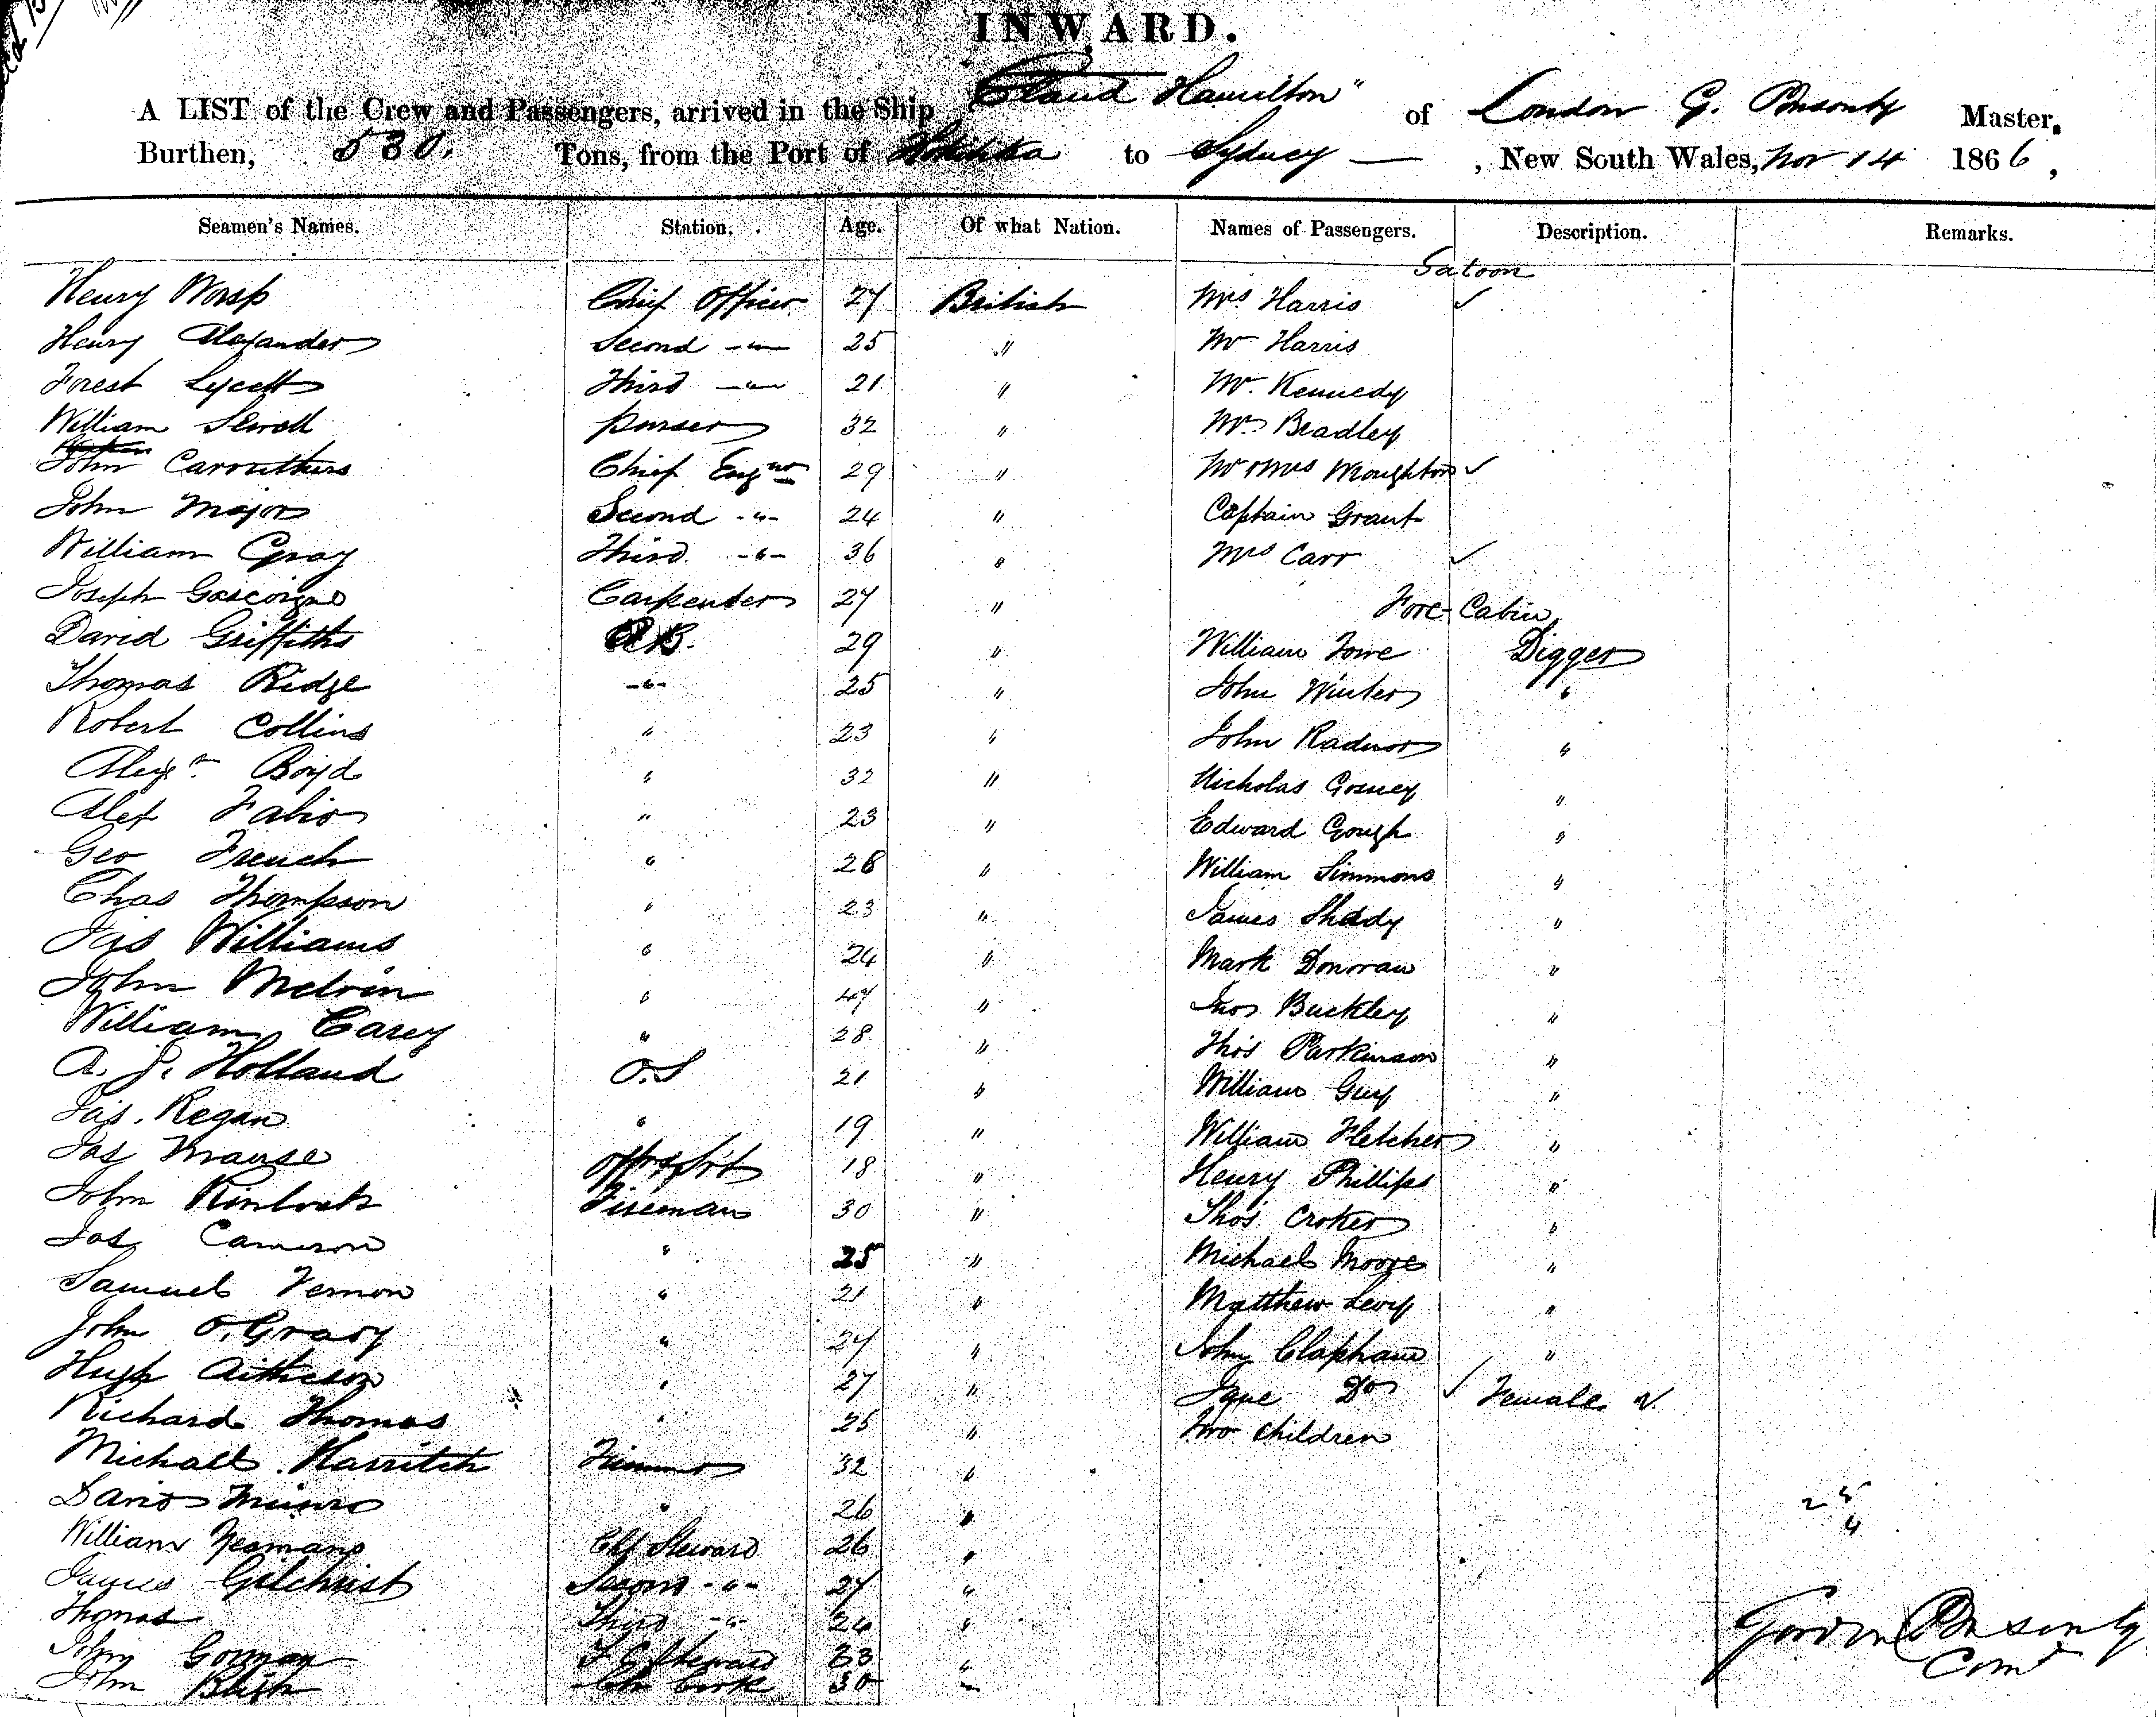 INWARD.
A LIST of the Crew and Passengers, arrived in the Ship "Claud Hamilton" of London G. Ponsonby Master,
Burthen, 530. Tons, from the Port of Hokitika to Sydney — , New South Wales, Nov 14 1866,
Seamen's Names. Station. Age. Of what Nation. Names of Passengers. Description. Remarks.
Saloon
Henry Wasp Chief Officer 27 British Mrs Harris ✓
Henry Alexander Second -"- 25 " Mr Harris
Forest Lycett Third -"- 21 " Mr. Kennedy
William Sewell purser 32 " Mr. Bradley
John Carouthers Chief Engnr 29 " Mr & Mrs Moughton ✓
John Major Second -"- 24 " Captain Grant
William Gray Third -"- 36 " Mrs Carr ✓
Joseph Gascoigne Carpenter 27 " Fore-Cabin
David Griffiths A.B. 29 " William Digger
Thomas Ridge -"- 25 " John Winter "
Robert Collins " 23 " John Radnor "
Alexr Boyd " 32 " Nicholas "
Alex Fabio " 23 " Edward Gough "
Geo French " 28 " William Simmons "
Chas Thompson " 23 " James Shady "
Jas Williams " 24 " Mark Donovan "
John Melvin " 47 " Buckley "
William Carey " 28 " Thos Parkinson "
A. J. Holland O.S 21 " William Guy "
Jas. Regan " 19 " William Fletcher "
Jas 18 " Henry Phillips "
John Fireman 30 " Thos Croker "
Jas Cameron " 25 " Michael Moore "
Samuel Vernon " 21 " Matthew Levy "
John O'Grady " 24 " John Clapham "
Hugh Aitkeson " 27 " Jane Do ✓ Female ✓
Richard Thomas " 25 " Two children
Michael Trimmer 32 "
David Munro " 26 "
25
4
William Yeomans Chf Steward 26 "
James Gilchrist Second -"- 27 "
Thomas Third -"- 24 "
Gordon Ponsonby
Comr
John Gorman F. C. Steward 33 "
John Bligh Ch Cook 30 "